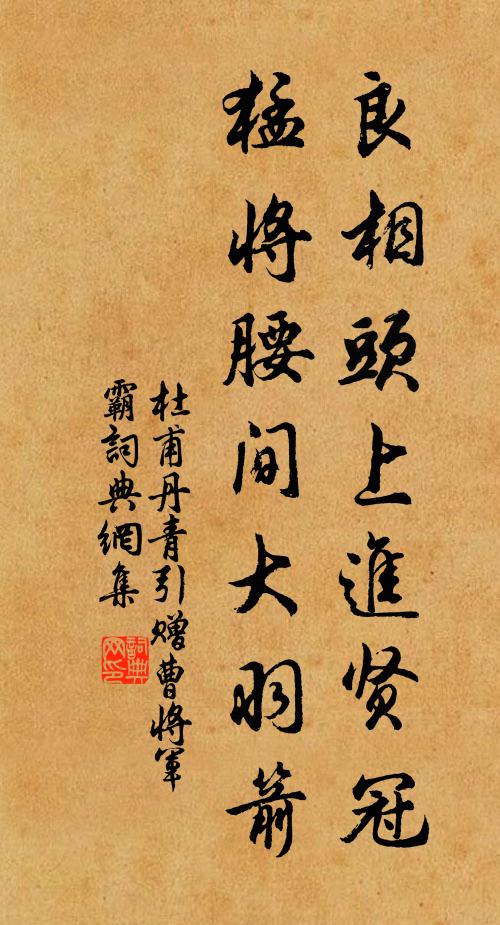 良相頭上進贤冠
猛将腰间大羽箭
杜甫丹青引赠曹将軍
霸詞典網集
詞典
网印